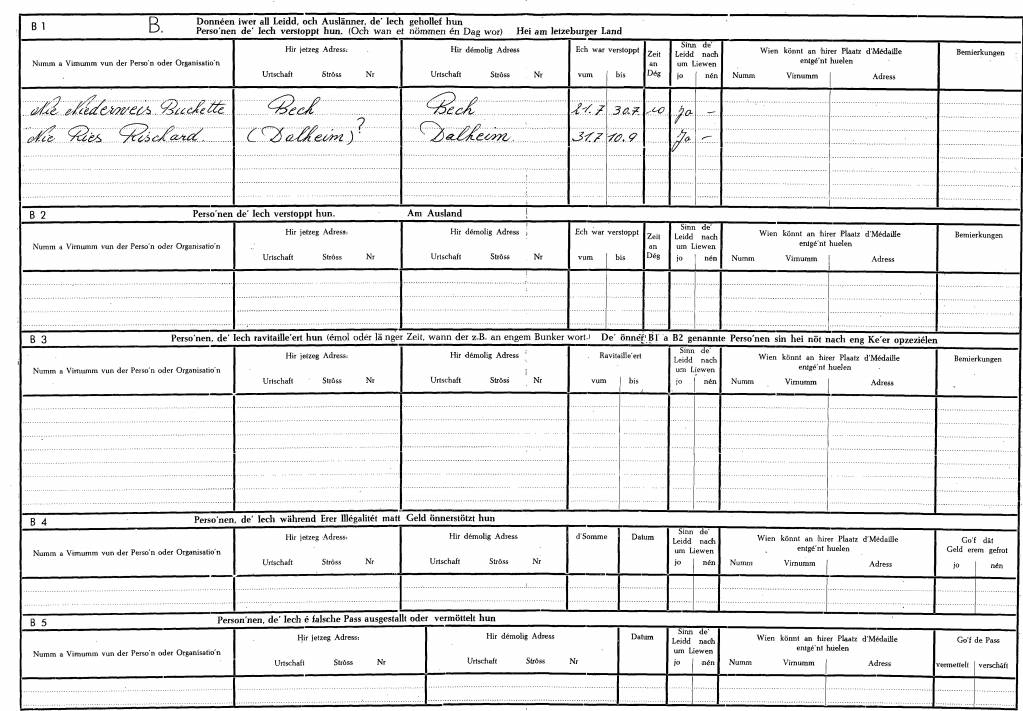 B 1 B. Donnéen iwer all Leidd, och Auslänner, de' Iech gehollef hun
Perso'nen de' Iech verstoppt hun. (Och wan et nömmen én Dag wor) Hei am letzeburger Land
Numm a Virnumm vun der Perso'n oder Organisatio'n Hir jetzeg Adress: Hir démolig Adress Ech war verstoppt Zeit an Dég Sinn de' Leidd nach um Liewen Wien könnt an hirer Plaatz d'Médaille entgé'nt huelen Bemierkungen
Urtschaft Ströss Nr Urtschaft Ströss Nr vum bis jo nén Numm Virnumm Adress
Niederweis Buchette Beck Beck 21.7 30.7 10 Ja –
Ries Rischard. (Dalheim)? Dalheim. 31.7 10.9 Ja –
B 2 Perso'nen de' Iech verstoppt hun. Am Ausland
Numm a Virnumm vun der Perso'n oder Organisatio'n Hir jetzeg Adress: Hir démolig Adress Ech war verstoppt Zeit an Dég Sinn de' Leidd nach um Liewen Wien könnt an hirer Plaatz d'Médaille entgé'nt huelen Bemierkungen
Urtschaft Ströss Nr Urtschaft Ströss Nr vum bis jo nén Numm Virnumm Adress
B 3 Perso'nen, de' Iech ravitaille'ert hun (émol oder länger Zeit, wann der z.B. an engem Bunker wort.) De' önner B1 a B2 genannte Perso'nen sin hei nöt nach eng Ke'er opzeziélen
Numm a Virnumm vun der Perso'n oder Organisatio'n Hir jetzeg Adress: Hir démolig Adress Ravitaille'ert Sinn de' Leidd nach um Liewen Wien könnt an hirer Plaatz d'Médaille entgé'nt huelen Bemierkungen
Urtschaft Ströss Nr Urtschaft Ströss Nr vum bis jo nén Numm Virnumm Adress
B 4 Perso'nen, de' Iech während Erer Illégalitét matt Geld önnerstötzt hun
Numm a Virnumm vun der Perso'n oder Organisatio'n Hir jetzeg Adress: Hir démolig Adress d'Somme Datum Sinn de' Leidd nach um Liewen Wien könnt an hirer Plaatz d'Médaille entgé'nt huelen Go'f dât Geld erem gefrot
Urtschaft Ströss Nr Urtschaft Ströss Nr jo nén Numm Virnumm Adress jo nén
B 5 Person'nen, de' Iech é falsche Pass ausgestallt oder vermöttelt hun
Numm a Virnumm vun der Perso'n oder Organisatio'n Hir jetzeg Adress: Hir démolig Adress Datum Sinn de' Leidd nach um Liewen Wien könnt an hirer Plaatz d'Médaille entgé'nt huelen Go'f de Pass
Urtschaft Ströss Nr Urtschaft Ströss Nr jo nén Numm Virnumm Adress vermettelt verschâft